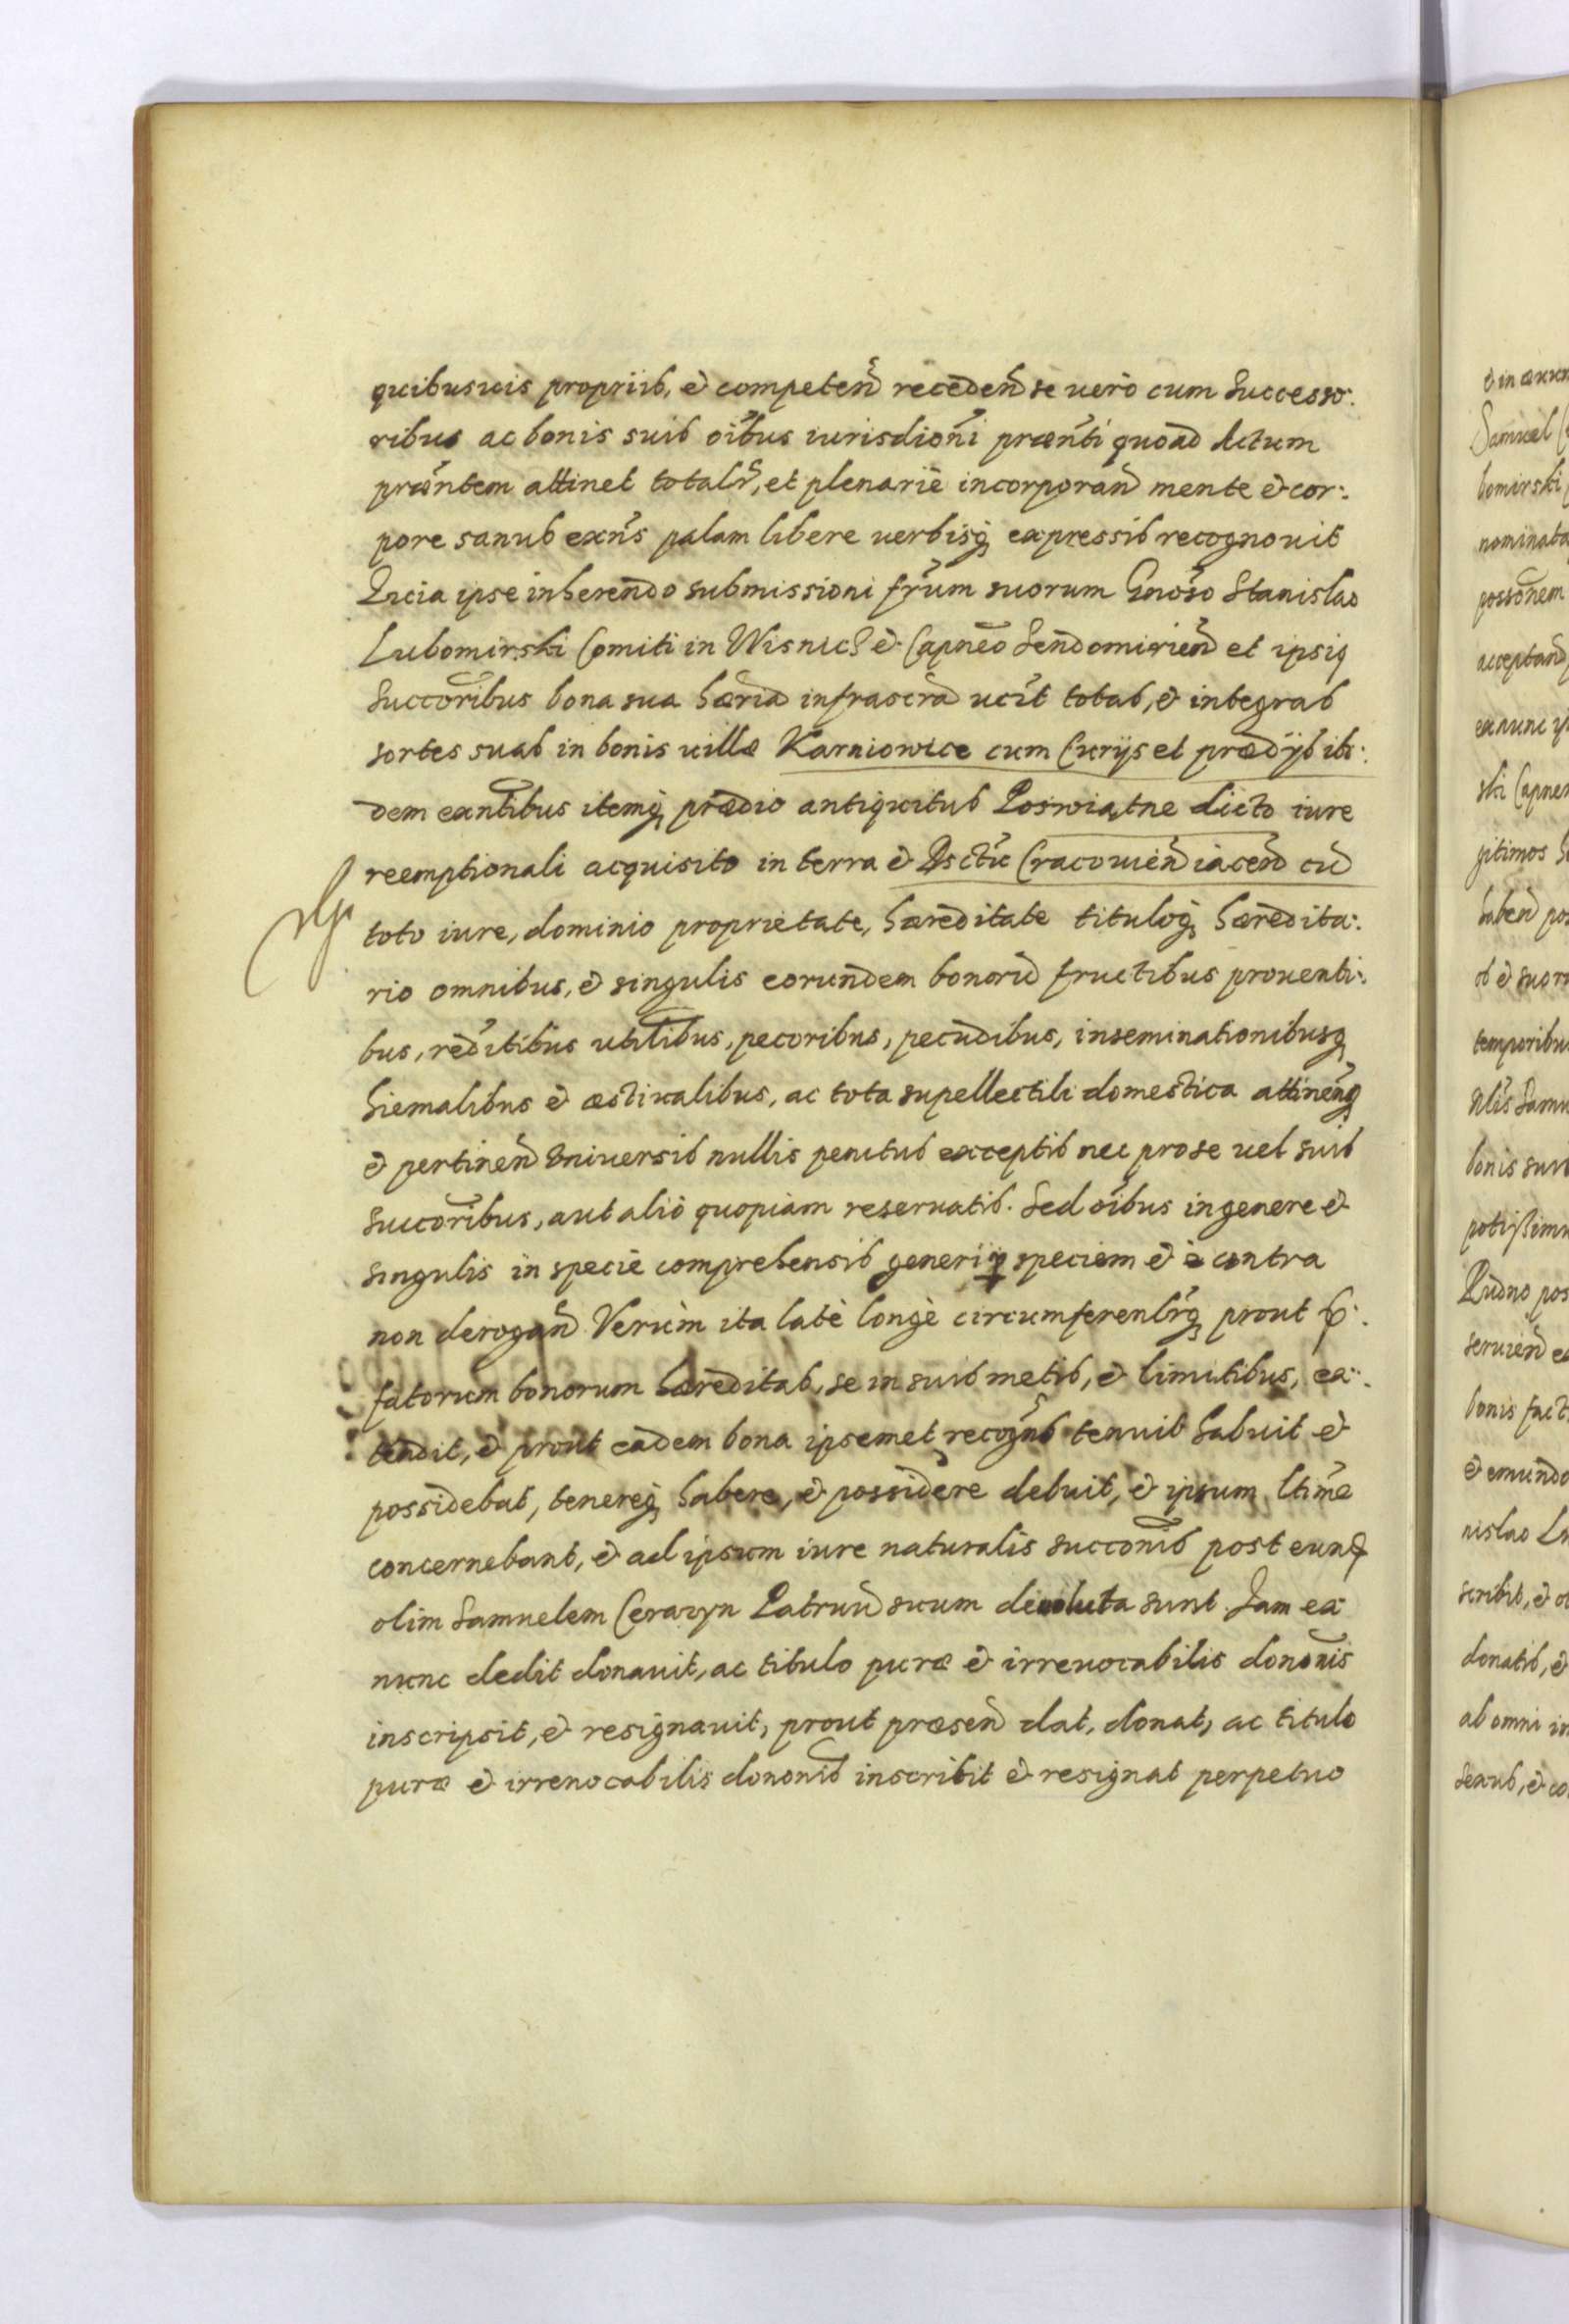 quibusuis propriis, et competen̄ receden̄ se uero cum Successo:
ribus ac bonis suis oībus iurisdioñi præn̄ti quoad Actum
præn̄tem attinet totalr̄, et plenariè incorporan̄ mente et cor:
pore sanus exn̄s palam libere uerbisq̨ expressis recognouit
Quia ipse inherendo submissioni fr̄um suorum Gnōso Stanislao
Lubomirski Comiti in Wisnich et Capneō Sendomirien̄ et ipsiq
Succōribus bona sua hæria infrascrā ucīt totas, et integras
sortes suas in bonis uillæ Karniowice cum Curijs et prædijs ibi:
dem exn̄tibus itemq̨ prædio antiquitus Poswiątne dicto iure
reemptionali acquisito in terra et Dsctu Cracouien̄ iacen̄ cū
toto iure, dominio proprietate, hæreditate tituloq̨ hæredita:
rio omnibus, et singulis eorundem bonorū fructibus prouenti:
bus, redītibus utilībus, pecoribus, pecudibus, inseminationibusq̨
hiemalibus et æstiualibus, ac tota supellectili domestica attinen̄q̨
et pertinen̄ Vniuersis nullis penitus exceptis nec pro se uel suis
succōribus, aut aliò quopiam reseruatis. Sed oībus in genere et
singulis in specie comprehensis generi ꝑ speciem et è contra
non derogan̄ Verùm ita latè longè circumferenlr̄q̨ prout p̄:
fatorum bonorum hæreditas, se in suis metis, et limitibus, ex:
tendit, et prout eadem bona ipsemet recogn̄s tenuit habuit et
possidebat, tenereq̨ habere, et possidere debuit, et ipsum ltimē
concernebant, et ad ipsum iure naturalis succonis̄ post eund̄
olim Samuelem Cerazyn Patruū suum deuoluta sunt. Jam ex
nunc dedit donauit, ac titulo puræ et irreuocabilis dononis̄
inscripsit, et resignauit, prout præsen̄ dat, donat, ac titulo
puræ et irreuocabilis dononis̄ inscribit et resignat perpetuo